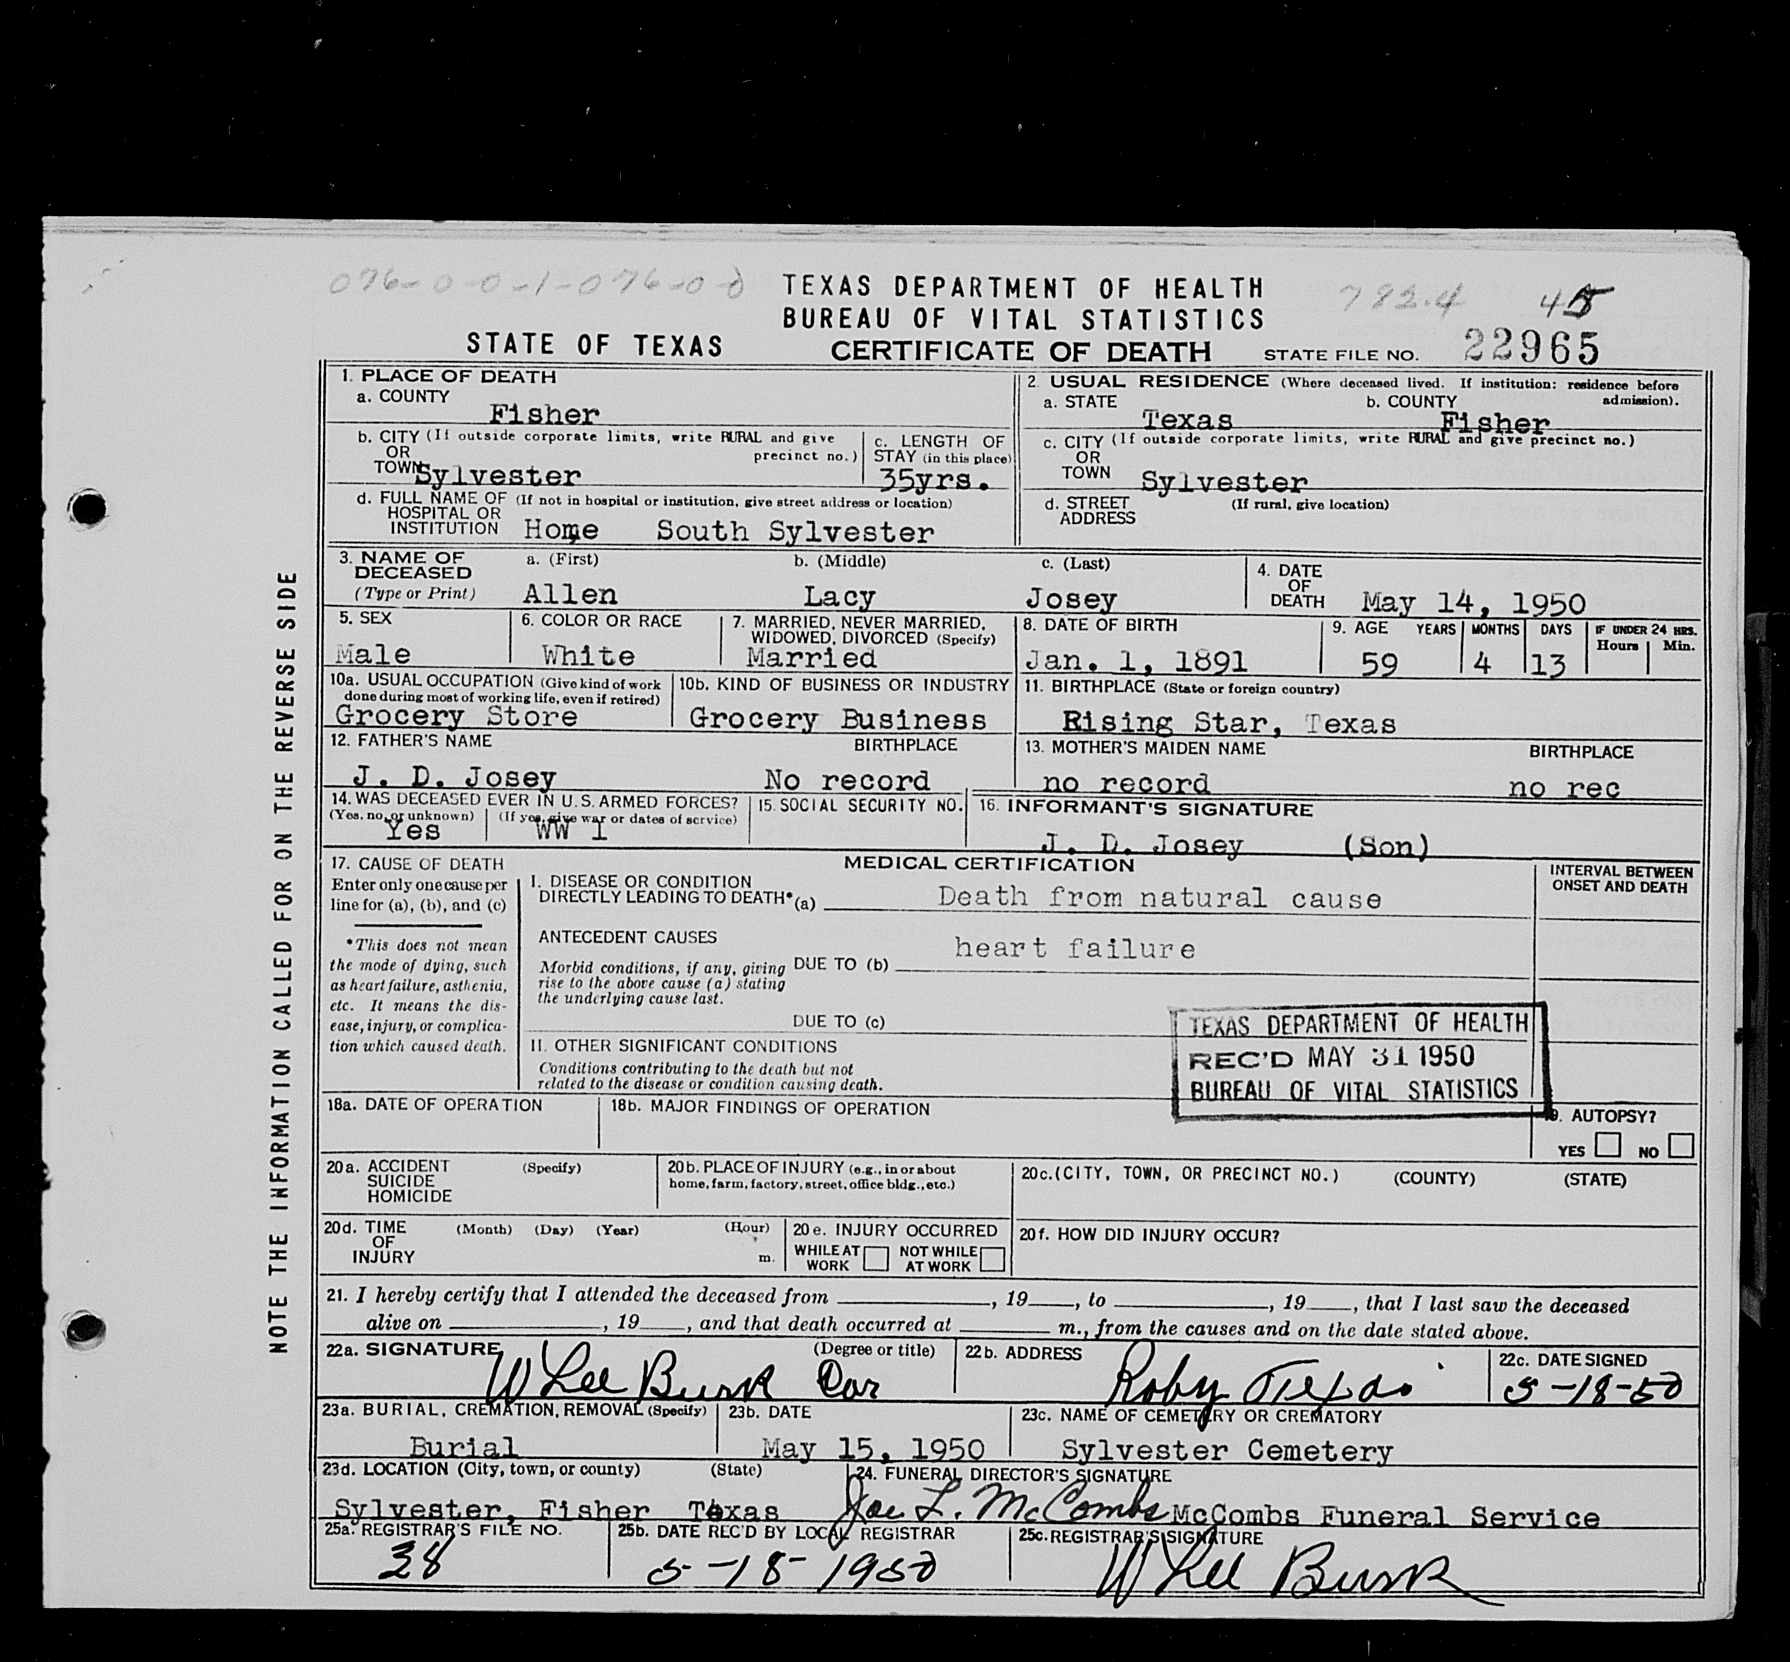 076-0-0-1-076-0-0
TEXAS DEPARTMENT OF HEALTH
BUREAU OF VITAL STATISTICS
782.4
STATE OF TEXAS
CERTIFICATE OF DEATH
STATE FILE NO. 22965
NOTE THE INFORMATION CALLED FOR ON THE REVERSE SIDE
1. PLACE OF DEATH
a. COUNTY
Fisher
2. USUAL RESIDENCE (Where deceased lived. If institution: residence before admission).
a. STATE
Texas
b. COUNTY
Fisher
b. CITY (If outside corporate limits, write RURAL and give precinct no.)
OR
TOWN Sylvester
c. LENGTH OF
STAY (in this place)
35yrs.
c. CITY (If outside corporate limits, write RURAL and give precinct no.)
OR
TOWN Sylvester
d. FULL NAME OF (If not in hospital or institution, give street address or location)
HOSPITAL OR
INSTITUTION Home South Sylvester
d. STREET (If rural, give location)
ADDRESS
3. NAME OF DECEASED
(Type or Print)
a. (First)
Allen
b. (Middle)
Lacy
c. (Last)
Josey
4. DATE
OF
DEATH May 14, 1950
5. SEX
Male
6. COLOR OR RACE
White
7. MARRIED, NEVER MARRIED,
WIDOWED, DIVORCED (Specify)
Married
8. DATE OF BIRTH
Jan. 1, 1891
9. AGE YEARS MONTHS DAYS IF UNDER 24 HRS.
Hours Min.
59 4 13
10a. USUAL OCCUPATION (Give kind of work
done during most of working life, even if retired)
Grocery Store
10b. KIND OF BUSINESS OR INDUSTRY
Grocery Business
11. BIRTHPLACE (State or foreign country)
Rising Star, Texas
12. FATHER'S NAME BIRTHPLACE
J. D. Josey No record
13. MOTHER'S MAIDEN NAME BIRTHPLACE
no record no rec
14. WAS DECEASED EVER IN U.S. ARMED FORCES?
(Yes, no, or unknown) (If yes, give war or dates of service)
Yes WW I
15. SOCIAL SECURITY NO.
16. INFORMANT'S SIGNATURE
J. D. Josey (Son)
17. CAUSE OF DEATH
Enter only one cause per
line for (a), (b), and (c)
*This does not mean
the mode of dying, such
as heart failure, asthenia,
etc. It means the dis-
ease, injury, or complica-
tion which caused death.
MEDICAL CERTIFICATION
INTERVAL BETWEEN
ONSET AND DEATH
I. DISEASE OR CONDITION
DIRECTLY LEADING TO DEATH* (a) Death from natural cause
ANTECEDENT CAUSES
Morbid conditions, if any, giving
rise to the above cause (a) stating
the underlying cause last.
DUE TO (b) heart failure
DUE TO (c)
II. OTHER SIGNIFICANT CONDITIONS
Conditions contributing to the death but not
related to the disease or condition causing death.
TEXAS DEPARTMENT OF HEALTH
REC'D MAY 31 1950
BUREAU OF VITAL STATISTICS
18a. DATE OF OPERATION
18b. MAJOR FINDINGS OF OPERATION
9. AUTOPSY?
YES NO
20a. ACCIDENT (Specify)
SUICIDE
HOMICIDE
20b. PLACE OF INJURY (e.g., in or about
home, farm, factory, street, office bldg., etc.)
20c. (CITY, TOWN, OR PRECINCT NO.) (COUNTY) (STATE)
20d. TIME (Month) (Day) (Year) (Hour)
OF
INJURY m.
20e. INJURY OCCURRED
WHILE AT WORK NOT WHILE AT WORK
20f. HOW DID INJURY OCCUR?
21. I hereby certify that I attended the deceased from , 19 , to , 19 , that I last saw the deceased
alive on , 19 , and that death occurred at m., from the causes and on the date stated above.
22a. SIGNATURE (Degree or title)
W Lee Burk Cor
22b. ADDRESS
Roby Texas
22c. DATE SIGNED
5-18-50
23a. BURIAL, CREMATION, REMOVAL (Specify)
Burial
23b. DATE
May 15, 1950
23c. NAME OF CEMETERY OR CREMATORY
Sylvester Cemetery
23d. LOCATION (City, town, or county) (State)
Sylvester, Fisher Texas
24. FUNERAL DIRECTOR'S SIGNATURE
Joe L. McCombs McCombs Funeral Service
25a. REGISTRAR'S FILE NO.
38
25b. DATE REC'D BY LOCAL REGISTRAR
5-18-1950
25c. REGISTRAR'S SIGNATURE
W Lee Burk